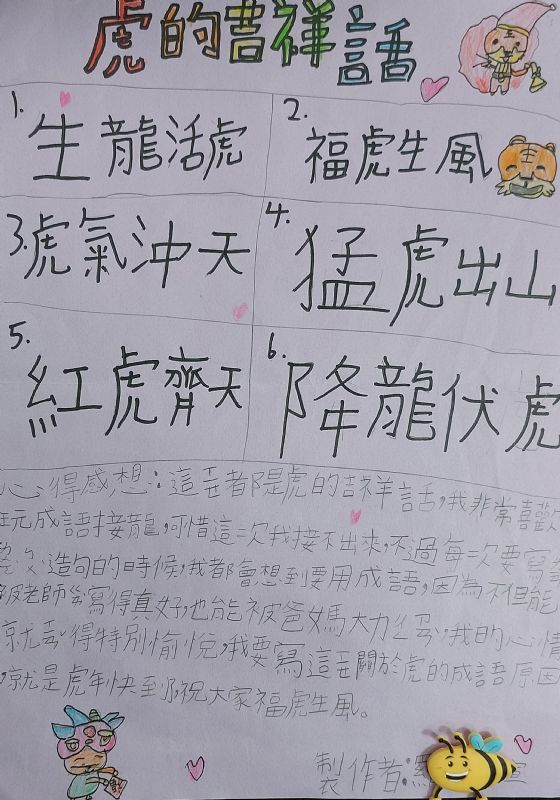 虎的吉祥話
1. 生龍活虎
2. 福虎生風
3. 虎氣沖天
4. 猛虎出山
5. 紅虎齊天
6. 降龍伏虎
心得感想:這ㄒㄧㄝ都是虎的吉祥話,我非常喜歡
玩成語接龍,可惜這一次我接不出來,不過每一次要寫
造句的時候,我都會想到要用成語,因為不但能
老師 寫得真好,也能被爸媽大力ㄗㄢ,我的心情
就 得特別愉悅,我要寫這 關於虎的成語原因
,就是虎年快到了,祝大家福虎生風。
製作者: